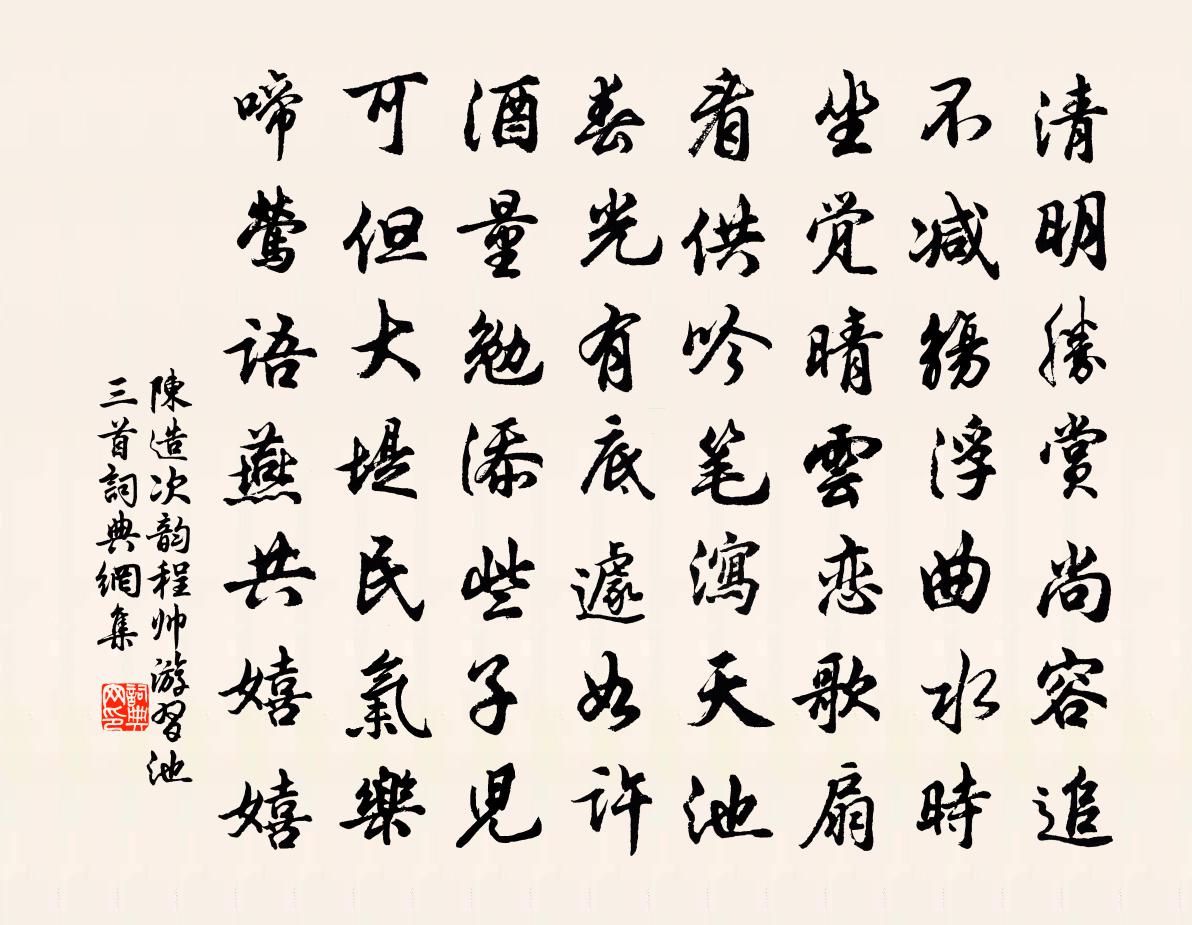 清明勝賞尚容追
不减觞浮曲水時
坐覚晴雲恋歌扇
看供吟笔瀉天池
春光有底遽如許
酒量勉添些子児
可但大堤民氣樂
啼鶯語燕共嬉嬉
陳造次韵程帅游習池
三首詞典網集
詞典网印